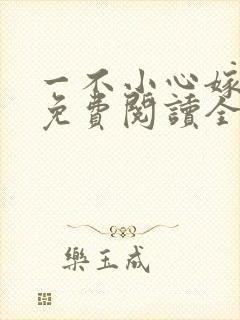 一不小心嫁
免費閱讀全
樂玉成